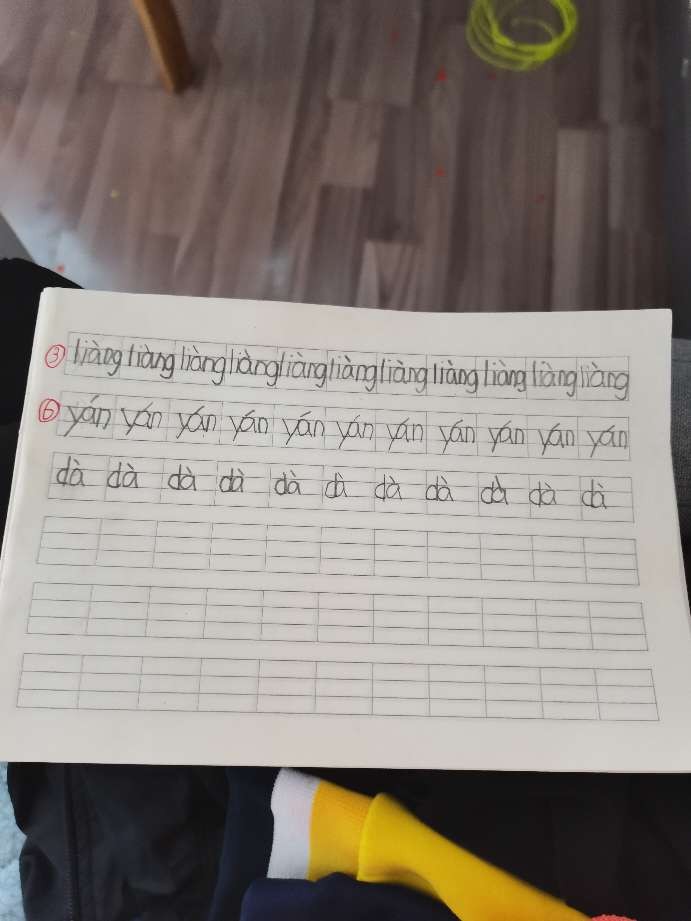 ③ liàng liàng liàng liàng liàng liàng liàng liàng liàng liàng liàng
⑥ yán yán yán yán yán yán yán yán yán yán yán
dà dà dà dà dà dà dà dà dà dà dà